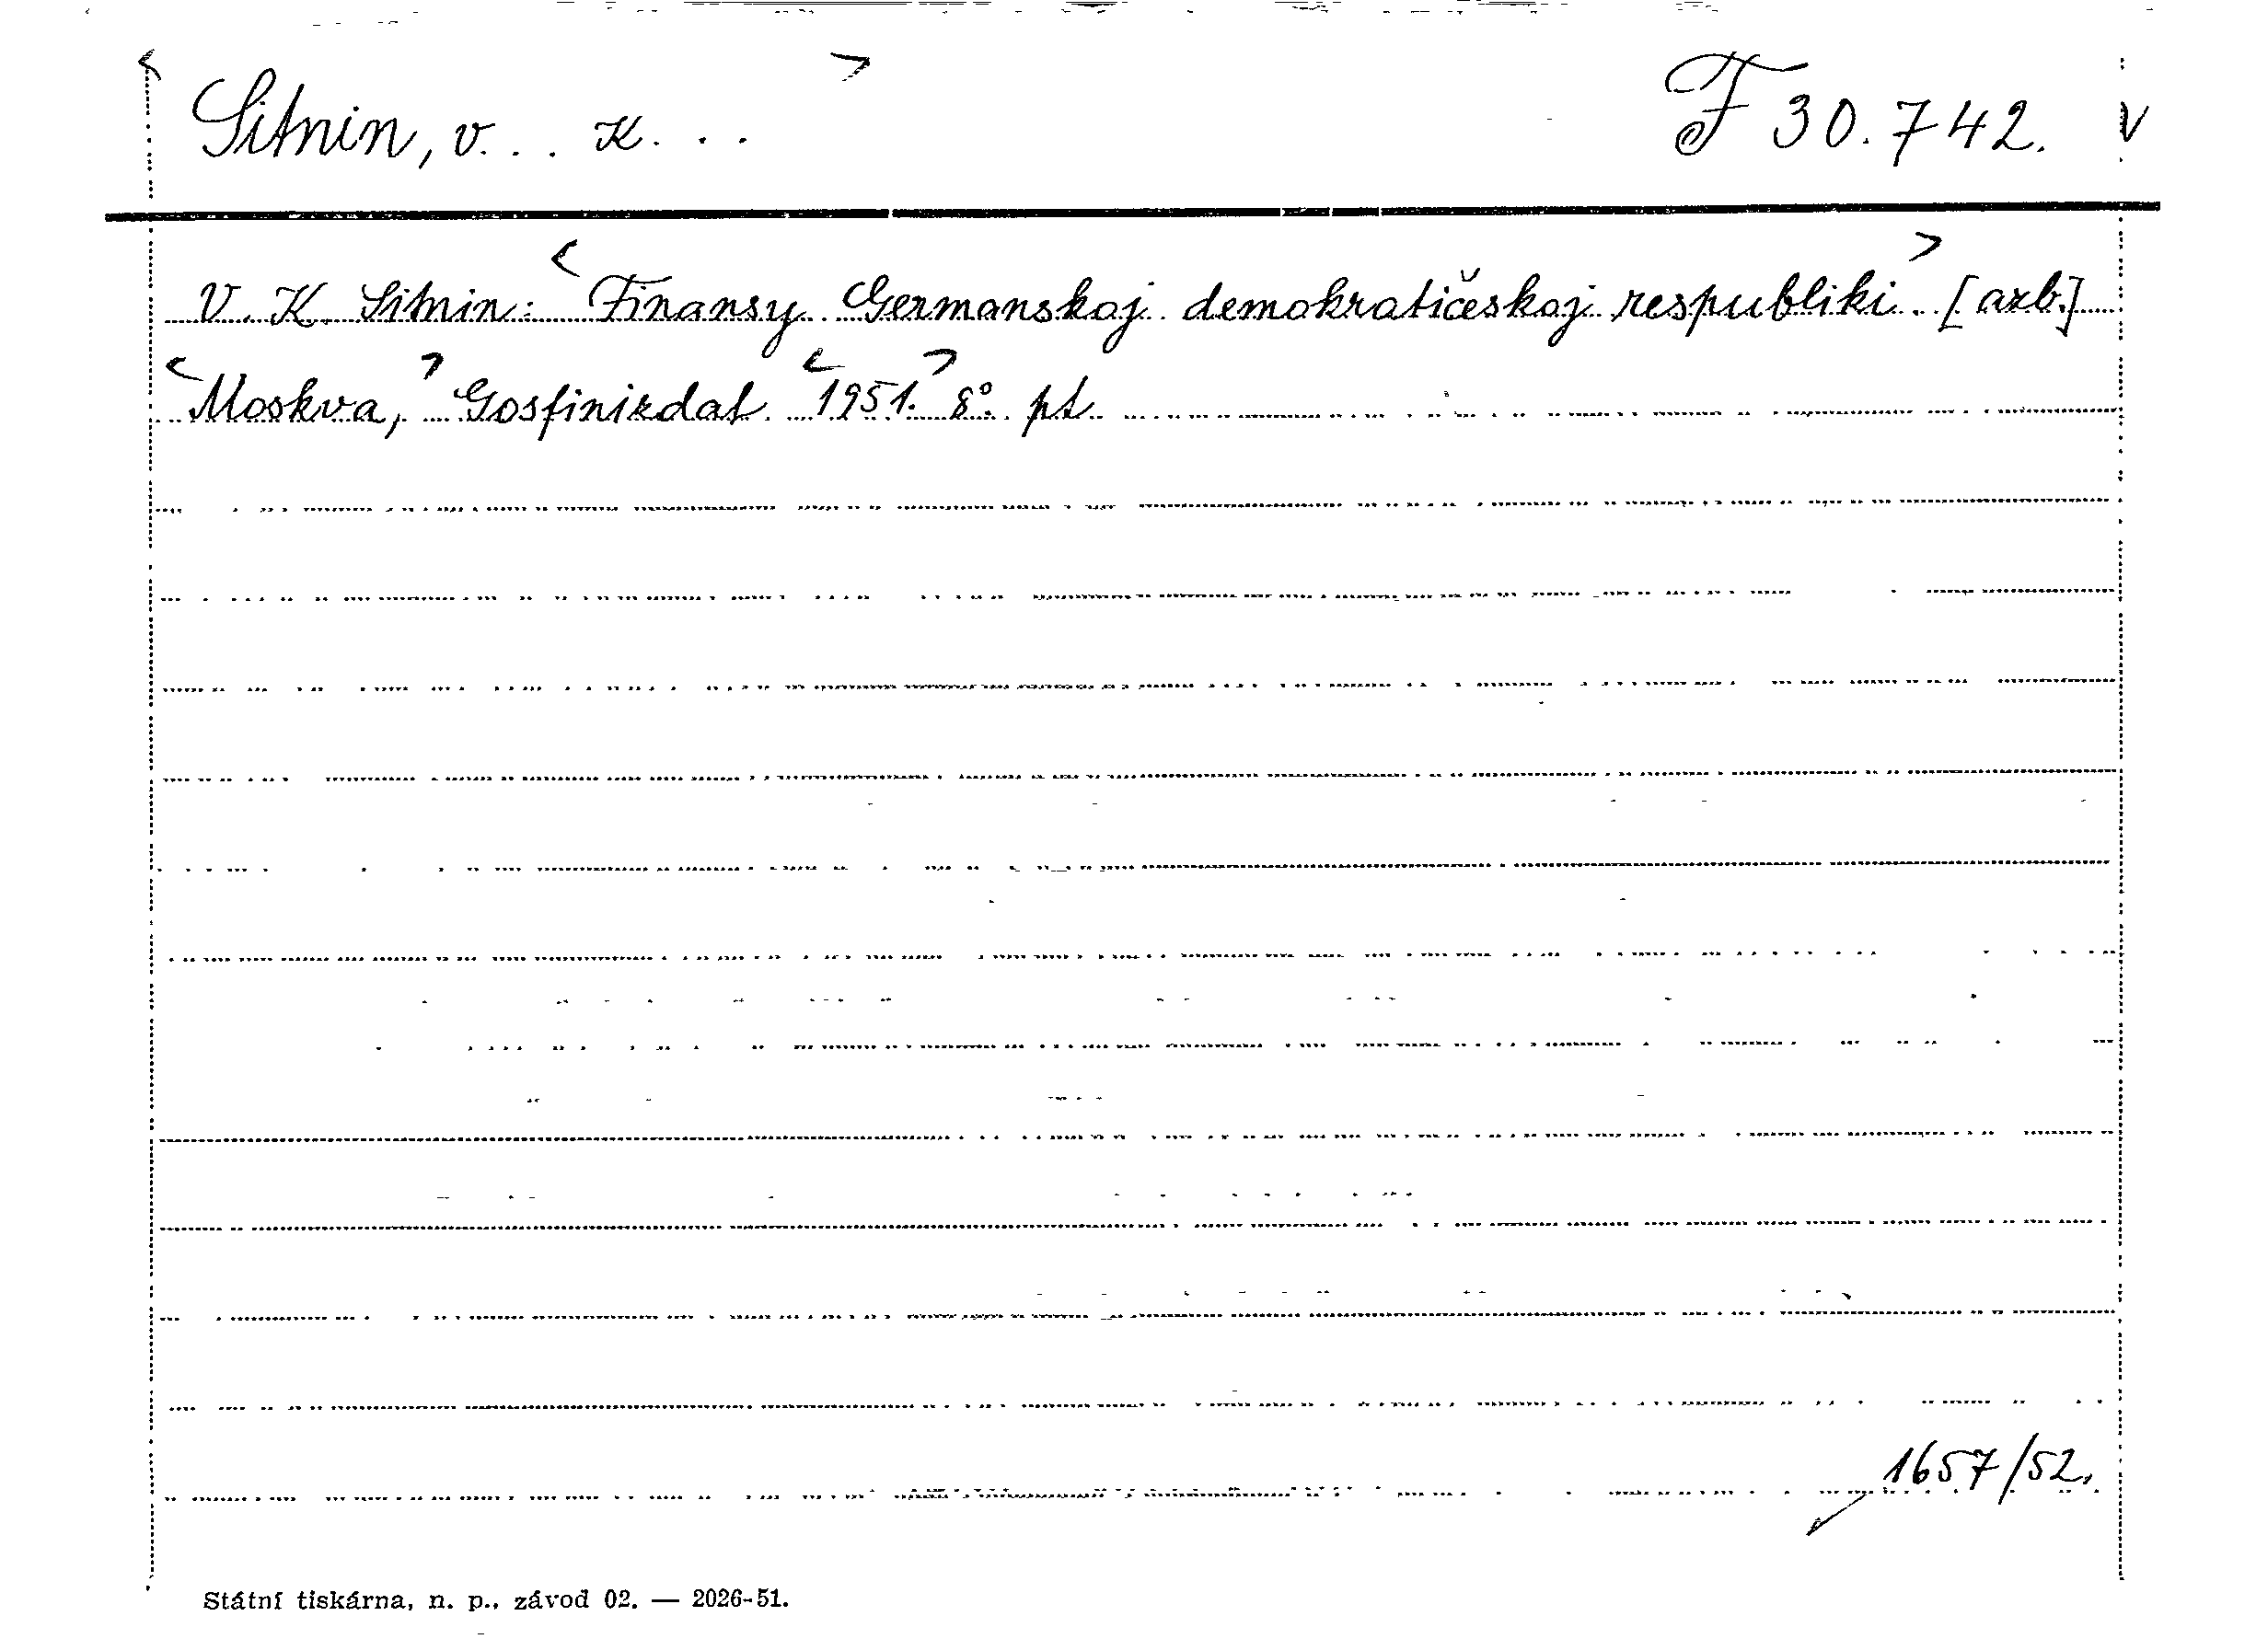 < Sitnin, v... K... > F 30.742. V
V. K. Sitnin: <Finansy Germanskoj demokratičeskoj respubliki>. [azb.]
<Moskva,> Gosfinizdat <1951.> 8°. pt.
1657/52.
Státní tiskárna, n. p., závod 02. — 2026-51.